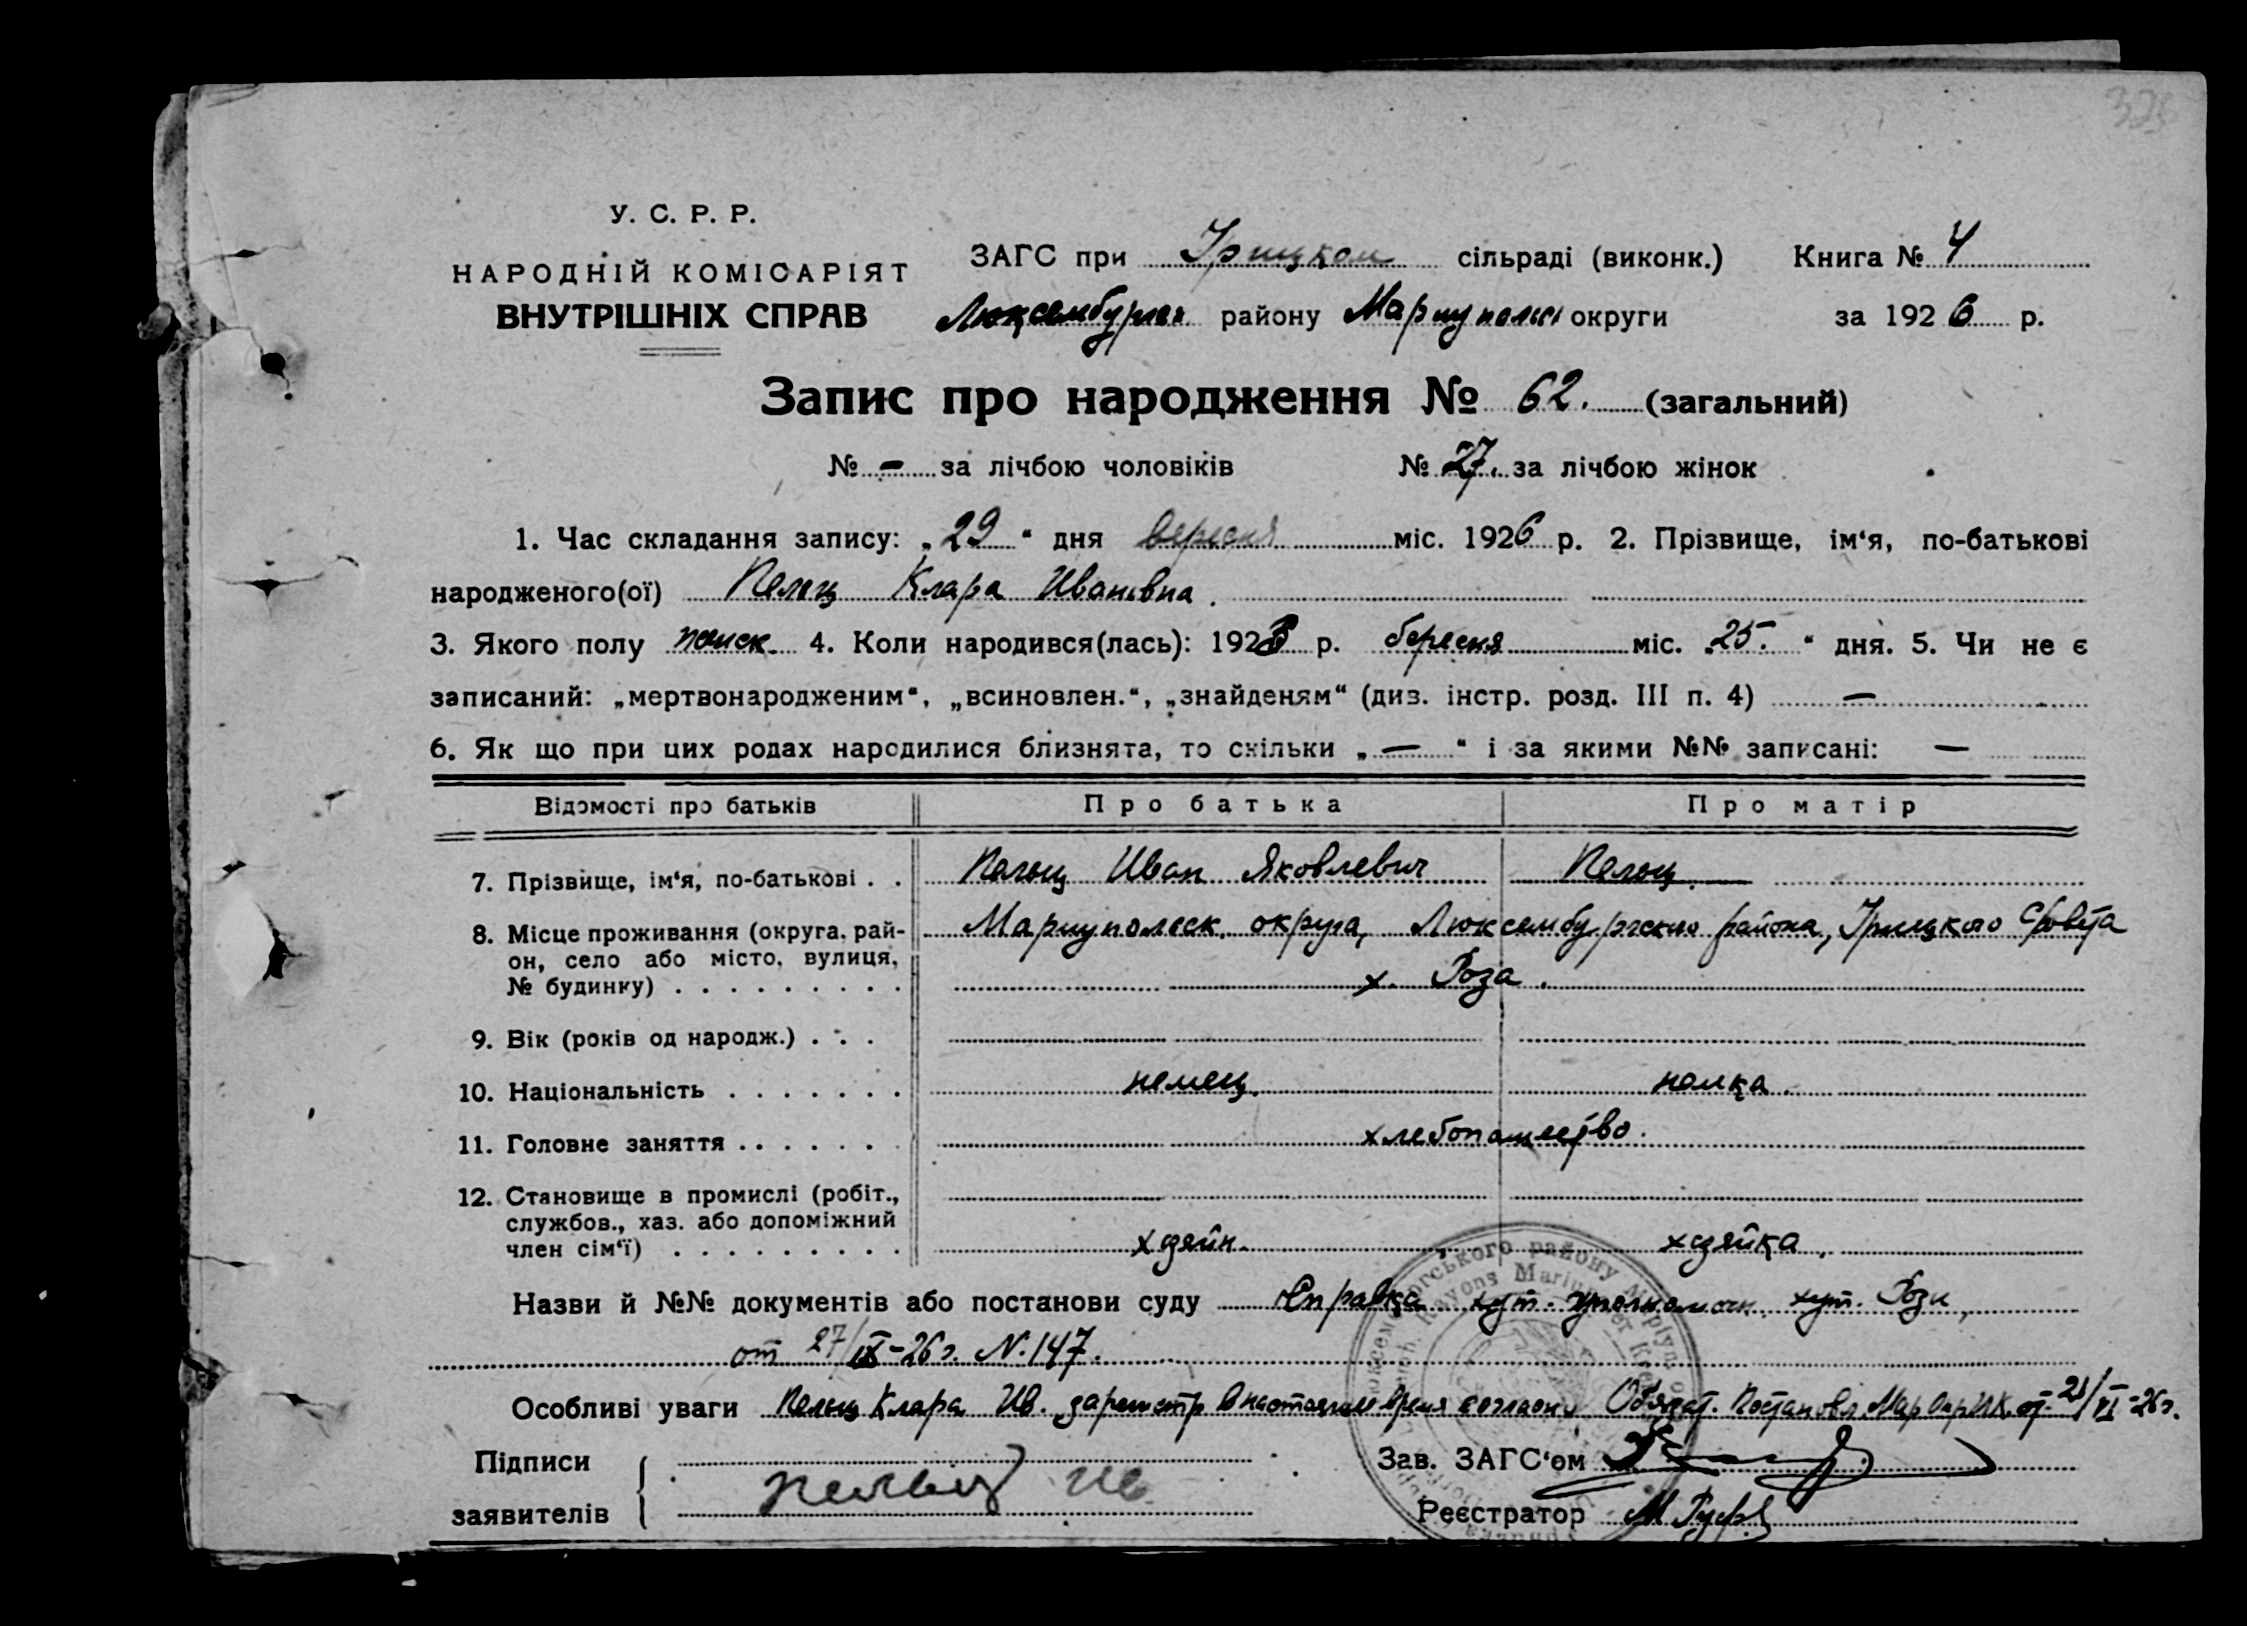 325
У. С. Р. Р.
НАРОДНІЙ КОМІСАРІЯТ
ВНУТРІШНІХ СПРАВ
ЗАГС при Урицком сільраді (виконк.) Книга № 4
Люксембургск району Мариупольс округи за 1926 р.
Запис про народження № 62. (загальний)
№ – за лічбою чоловіків № 27. за лічбою жінок
1. Час складання запису: „29“ дня вересня міс. 1926 р. 2. Прізвище, ім‘я, по-батькові
народженого(ої) Пельц Клара Ивановна.
3. Якого полу 4. Коли народився(лась): 192 р. міс. „25.“ дня. 5. Чи не є
записаний: „мертвонародженим“, „всиновлен.“, „знайденям“ (див. інстр. розд. III п. 4) —
6. Як що при цих родах народилися близнята, то скільки „—“ і за якими №№ записані: —
Відомості про батьків Про батька Про матір
7. Прізвище, ім‘я, по-батькові . . Пельц Иван Яковлевич Пельц. —
8. Місце проживання (округа, рай- Мариуполск. округа, Люксембургского района, Урицкого С/совета
он, село або місто, вулиця,
№ будинку) . . . . . . . . . х. Роза.
9. Вік (років од народж.) . . .
10. Національність . . . . . . . немец. немка.
11. Головне заняття . . . . . . хлебопашество.
12. Становище в промислі (робіт.,
службов., хаз. або допоміжний
член сім‘ї) . . . . . . . . . хозяин. хозяйка.
Назви й №№ документів або постанови суду Справка хут. уполномоч. хут. Розы,
от 27/IX-26г. N. 147.
Особливі уваги Пельц Клара Ив. зарегистр в настоящее время согласно Обязат. Постановл МарОкрИК. от
Підписи
заявителів Пельц Ив
Зав. ЗАГС‘ом
Реєстратор М